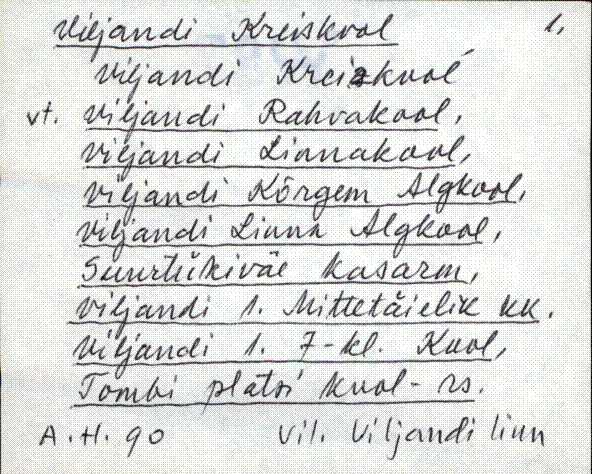 Viljandi Kreiskool 1.
Viljandi Kreizkool
vt. Viljandi Rahvakool,
Viljandi Linnakool,
Viljandi Kõrgem Algkool,
Viljandi Linna Algkool,
Suurtükiväe kasarm,
Viljandi 1. Mittetäielik kk.
Viljandi 1. 7-kl. Kool,
Tombi platsi kool - rs.
A.H. 90 Vil. Viljandi linn